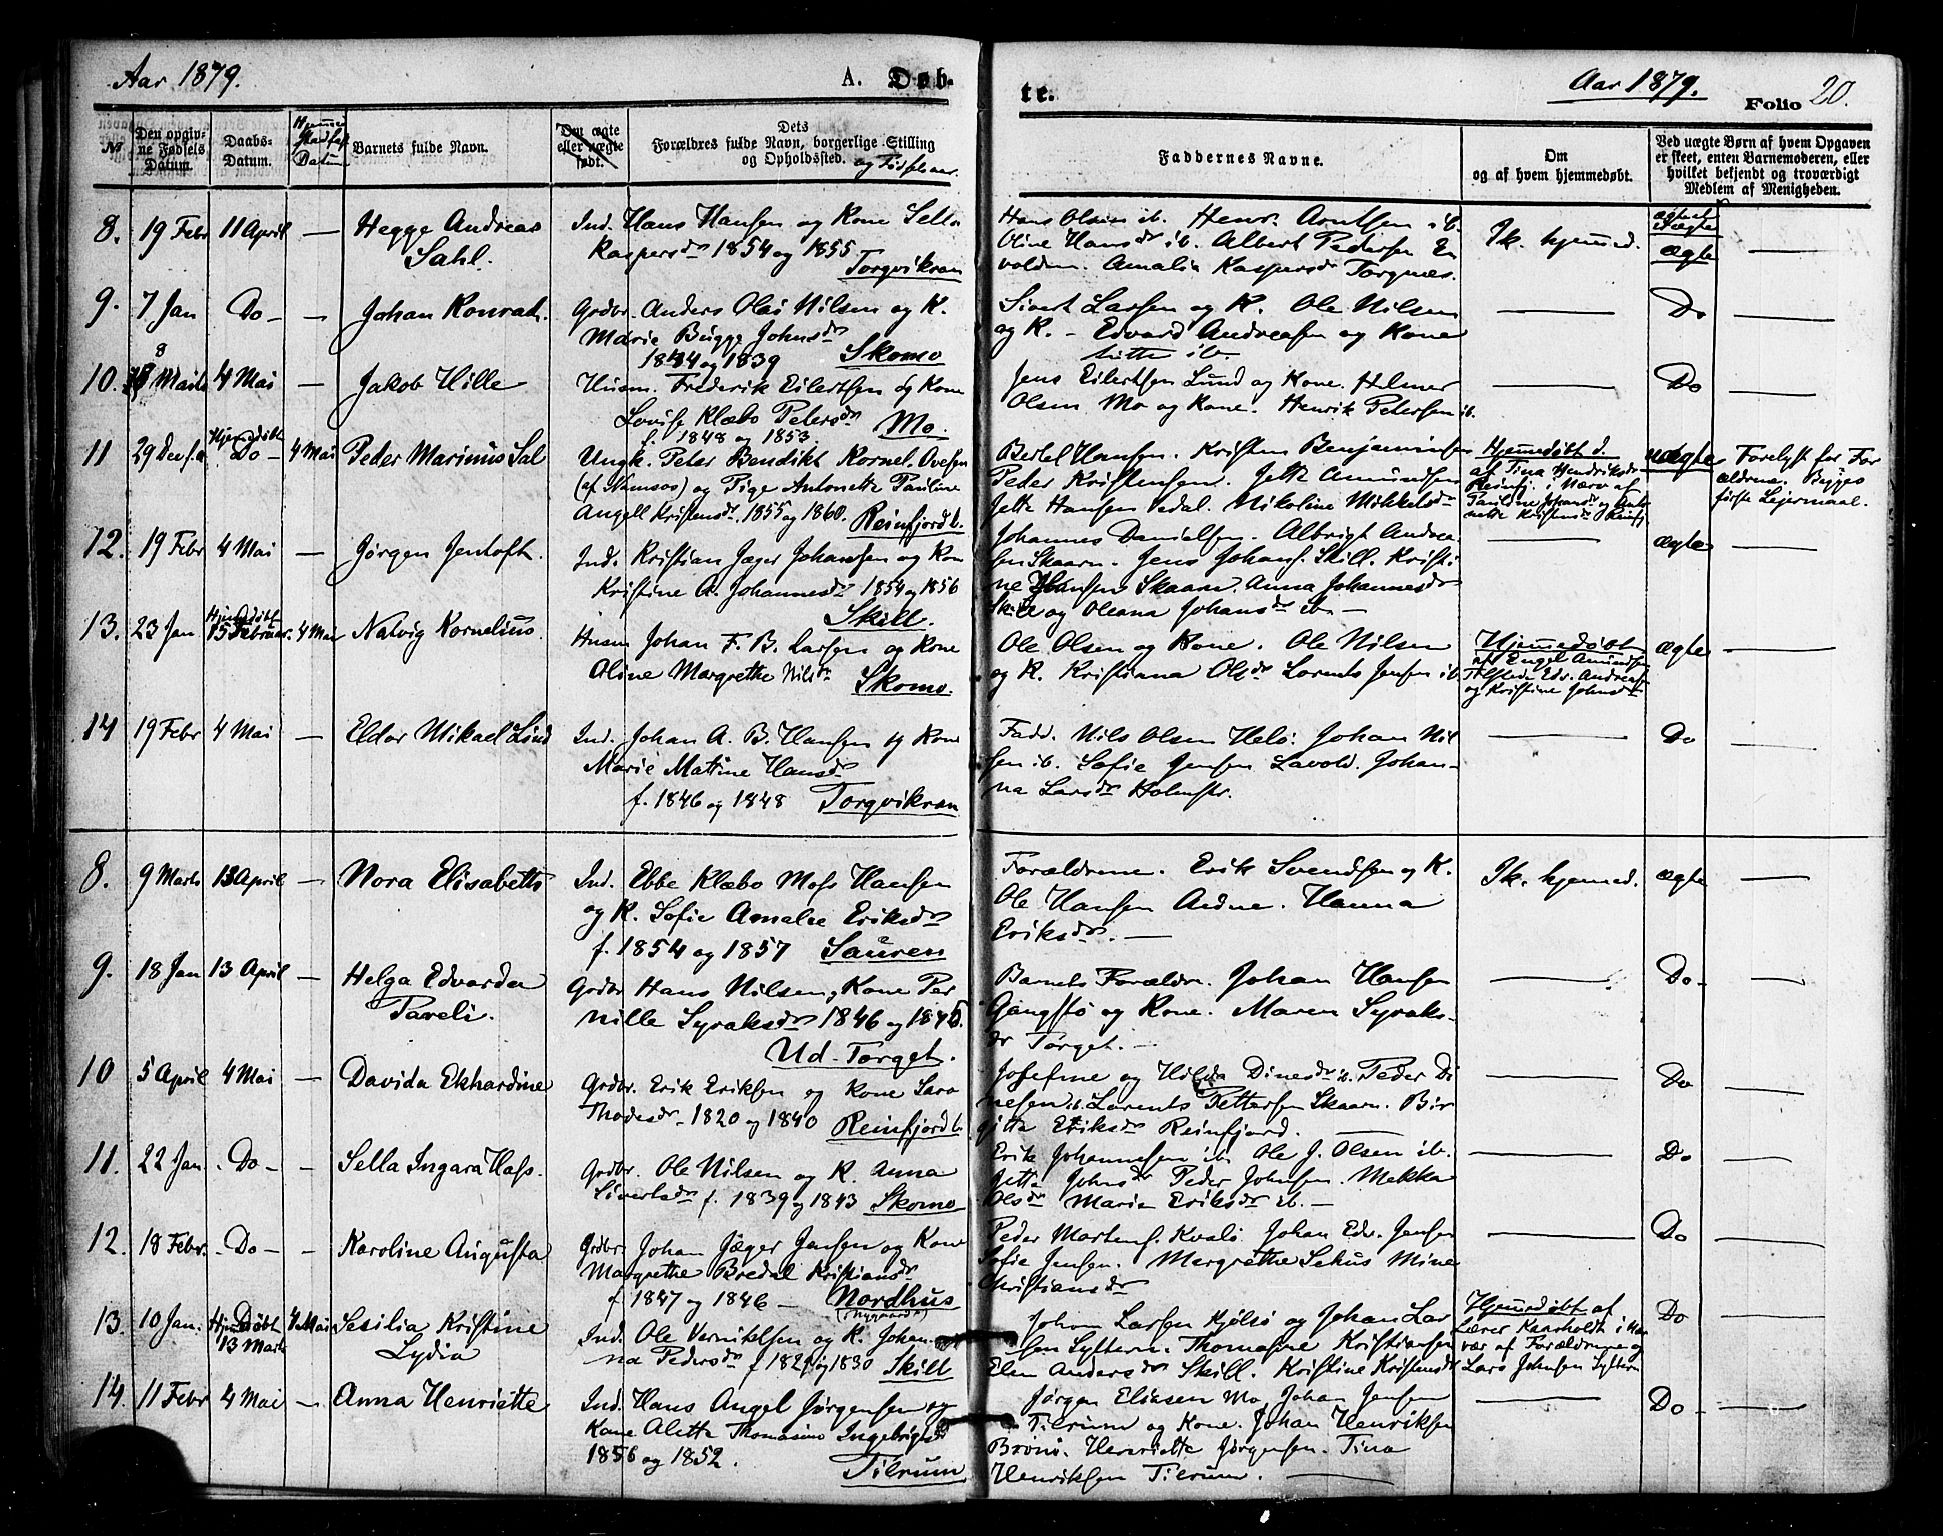 Aar 1879.
A. Døb-
te.
Aar 1879.
Folio 20.
№
Den opgiv-
ne Fødsels
Datum.
Daabs-
Datum.
Datum
Barnets fulde Navn.
Om ægte
eller uægte
født.
Dets
Forældres fulde Navn, borgerlige Stilling
og Opholdssted. og Fødselsaar.
Faddernes Navne.
Om
og af hvem hjemmedøbt.
Ved uægte Børn af hvem Opgaven
er skeet, enten Barnemoderen, eller
hvilket bekjendt og troværdigt
Medlem af Menigheden.
8. 19 Febr 11 April — Hegge Andreas
Sahl.
Ind. Hans Hansen og Kone Sella
Kaspersdr 1854 og 1855
Torgvikran
Hans Olsen ib. Henr. Arntsen ib.
Oline Hansdr ib. Albert Pedersen
Amalia Kaspersdr Torgnæs.
Ik. hjemmed.
ægte —
9. 7 Jan Do — Johan Konrad.
Grdbr. Anders Olai Nilsen og K.
Marie Bugge Johnsdr
1844 og 1839 Skomo
Sivert Larsen og K. Ole Nilsen
og K. – Edvard Andreasen og Kone
ib.
— Do —
10. 8 Marts 4 Mai — Jakob Hille
Husm. Frederik Eilertsen og Kone
Lovise Klæbo Petersdr
f. 1848 og 1853. Mo.
Jens Eilertsen Lund og Kone. Helmer
Olsen Mo og Kone. Henrik Petersen ib.
— Do
11 29 Dec f.a. Hjemmedøbt
Do 4 Mai Peder Marinus Sal
Ungk. Peter Bendikt Kornel. Ovesen
(af Namsos) og Pige Antonette Pauline
Angell Kristensdr. 1855 og 1860. Reinfjord
Bertel Hansen. Kristen Benjaminsen
Peder Kristensen. Jette Amundsen
Jette Hansen Nikoline Mikkelsdr
Hjemmedøbt d.
af Tina Hendriksdr
Reinfj. i Nærv af
Pauline Johansdr og
Kristensdr Reinfj
uægte
Forelyst for For
ældrene. Begges
første Leiermaal.
12. 19 Febr 4 Mai — Jørgen Jentoft.
Ind. Kristian Jæger Johansen og Kon
Kristine A. Johannesdr 1854 og 1856
Skill.
Johannes Danielsen. Albrigt Andrea
sen Skaarn. Jens Johans. Skill. Kristi
ne Hansen Skaarn. Anna Johannesdr
Skill og Oleana Johansdr ib. —
— ægte —
13. 23 Jan Hjemmedøbt
15 Februar. 4 Mai Nalvig Kornelius.
Husm Johan F. B. Larsen og Kone
Oline Margrethe Nilsdr
Skomo.
Ole Olsen og Kone. Ole Nilsen
og K. Kristiana Olsdr Lorents Jensen ib.
Hjemmedøbt
af Engel Amundsen
Edv. Andreas
og Kristine Johnsdr
ægte —
14 19 Febr 4 Mai — Eldor Mikael Lind
Ind. Johan A. B. Hansen og Kone
Marie Matine Hansdr
f. 1846 og 1848 Torgvikran
Fadd. Nils Olsen Helø. Johan Nil
sen ib. Sofie Jensen Lavold. Johan-
na Larsdr Holmstr.
— Do —
8. 9 Marts 13 April — Nora Elisabeth
Ind. Ebbe Klæbo Moss Hansen
og K. Sofie Amalie Eriksdr
f. 1854 og 1857 Sauren
Forældrene. Erik Svendsen og K.
Ole Hansen Aidne. Hanna
Eriksdr. —
Ik. hjemmed. ægte —
9. 18 Jan 13 April — Helga Edvarda
Pareli.
Grdbr Hans Nilsen, Kone Per
nille Syraksdr 1846 og
Ud-Torget.
Barnets Forældre. Johan Hansen
Gangstø og Kone. Maren Syraks-
dr Torget. —
— Do —
10 5 April 4 Mai — Davida Ekhardine
Grdbr. Erik Eriksen og Kone Sara
Thodesdr 1820 og 1840 Reinfjord
Josefine og Hilda Dinesdr ib. Peder Di
nesen ib. Lorents Pettersen Skaarn. Bir
gitta Eriksdr Reinfjord. —
— Do —
11. 22 Jan. Do — Sella Ingara Hass.
Grdbr. Ole Nilsen og K. Anna
Sivertsdr f. 1839 og 1843 Skomo
Erik Johannesen ib. Ole J. Olsen ib.
Jette Johnsdr Peder Johnsen. Mekka
Olsdr Marie Eriksdr ib. —
— Do —
12. 18 Febr. Do — Karoline Augusta
Grdbr. Johan Jæger Jensen og Kone
Margrethe Bredal Kristiansdr
f 1847 og 1846 — Nordhus
(Nygaard)
Peder Mortens. Kvalø. Johan Edv. Jensen
Sofie Jensen. Margrethe Sehus Mine
Christiansdr
— Do —
13. 10 Jan. Hjemmedøbt
13 Marts 4 Mai Sesilia Kristine
Lydia
Ind. Ole Vernitelsen og K. Johan
na Pedersdr f 1821 og 1830 Skill
Johan Larsen Kjølsø og Johan Lar
sen Thomasine Kristiansen
Elen Andersdr Skill. Kristine Kristensdr
Hjemmedøbt af
Lærer Kaarholdt i Nær
vær af Forældrene og
Lars Johnsen
Do —
14. 11 Febr 4 Mai — Anna Henriette
Ind. Hans Angel Jørgensen og
Kone Aletta Thomasine Ingebrigtsdr
1856 og 1852.
Tilrum
Jørgen Eliasen Mo, Johan Jensen
Tilrum og Kone. Johan Henriksen
Brønø. Henriette Jørgensen. Tina
Henriksen Tilrum. —
— Do —